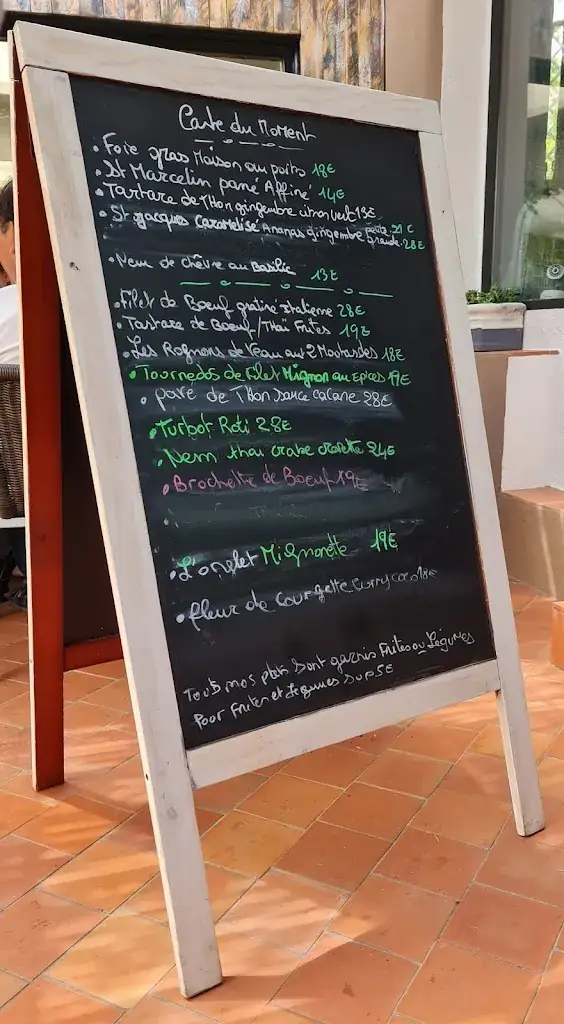 Carte du Moment
• Foie gras Maison au porto 18€
• St Marcelin pané Affiné 14€
• Tartare de Thon gingembre citron vert 18€
• St Jacques Caramelisé Ananas gingembre petite 21€
grande 28€
• Nem de chèvre au Basilic 13€
• Filet de Boeuf gratiné italienne 28€
• Tartare de Boeuf/Thaï Frites 19€
• Les Rognons de Veau aux 2 Moutardes 18€
• Tournedos de Filet Mignon au Epices 19€
• pavé de Thon sauce 28€
• Turbot Roti 28€
• Nem thai crabe 24€
• Brochette de Boeuf 19€
• L'onglet Mignonette 19€
• fleur de Courgette Curry coco 18€
Tous nos plats sont garnis Frites ou Légumes
Pour Frites et Légumes sup 5€